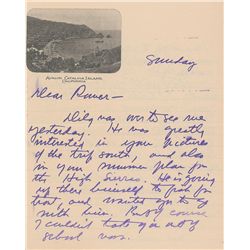 AVALON, CATALINA ISLAND,
CALIFORNIA
Sunday
Dear Power –
was over to see me
yesterday. He was greatly
interested in your pictures
of the trip south, and also
in your summer plan for
the High Sierras. He is going
up there himself to fish for
trout, and wanted you to go
with him. But of course
I couldn't take you out of
school now.